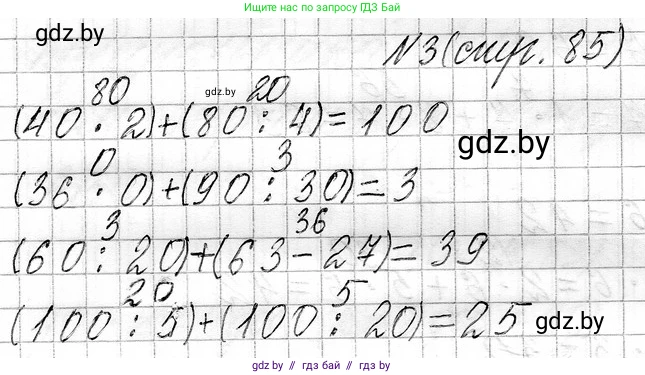 Ищите нас по запросу ГДЗ Бай
gdz.by
№3 (стр. 85)
80 gdz.by 20
(40 · 2) + (80 : 4) = 100
gdz.by
0 3
(36 · 0) + (90 : 30) = 3
3 36
(60 : 20) + (63 - 27) = 39
20 5
(100 : 5) + (100 : 20) = 25 gdz.by
gdz.by // гдз бай // гдз by